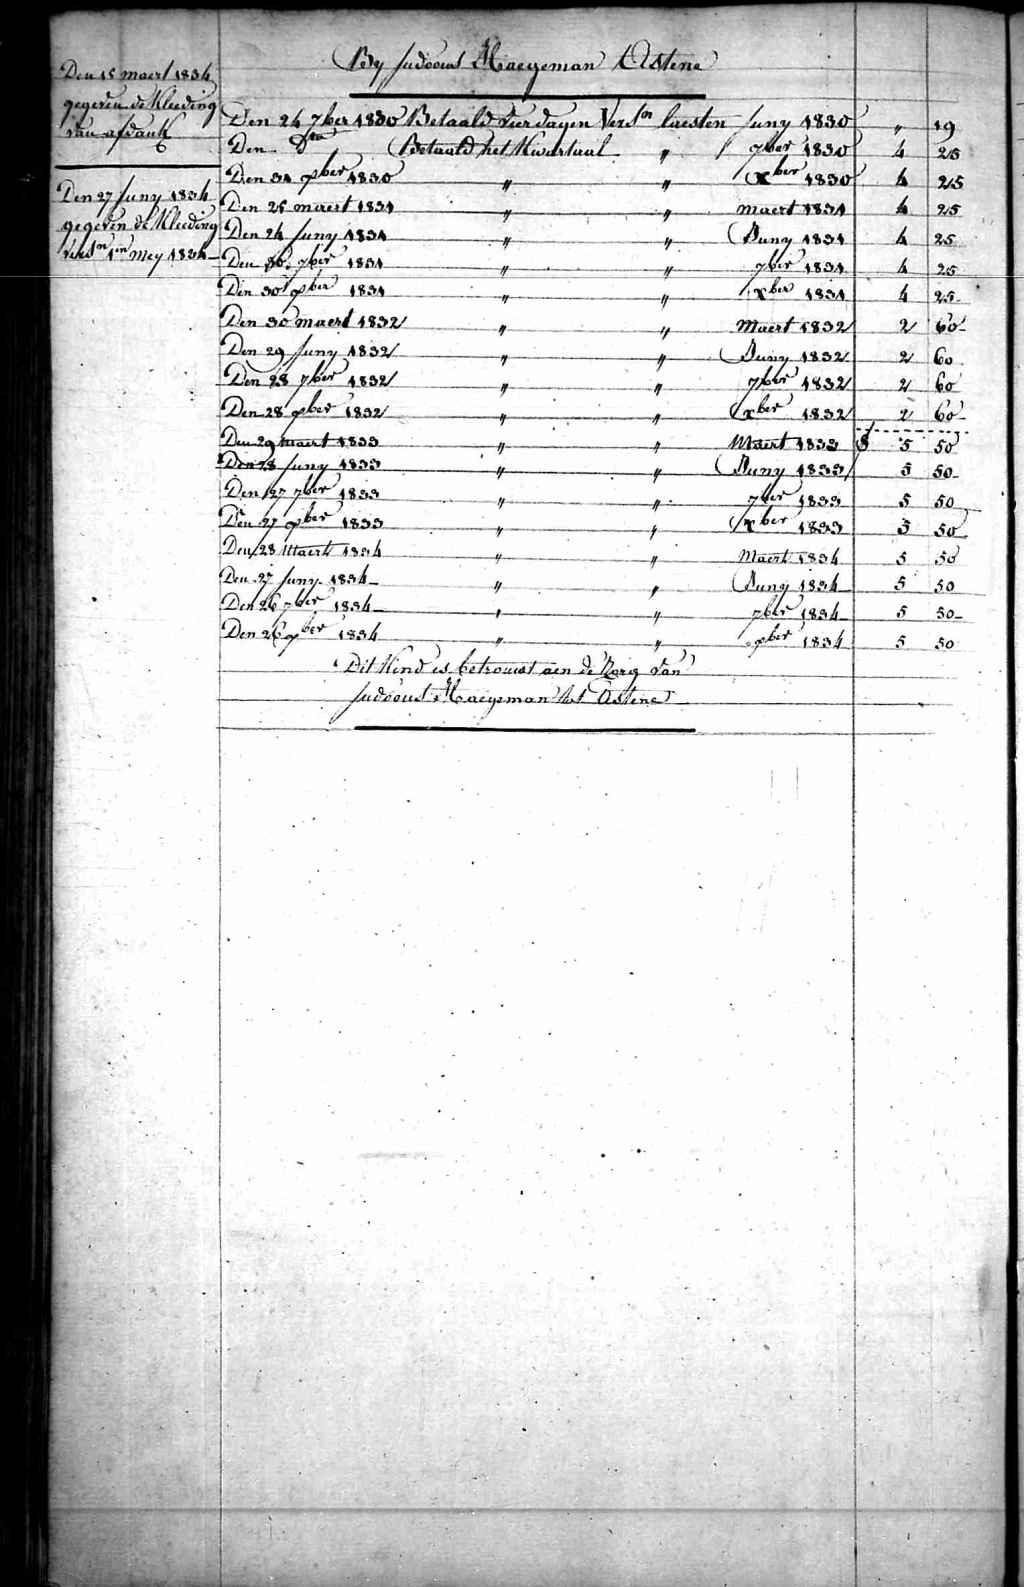 Den 15 maert 1834
gegeven de Kleeding
van afdank
Den 27 Juny 1834
gegeven de Kleeding
vers.n 1en Mey 1834
By Judocus Haegeman Astene
Den 24 7ber 1830 Betaald vier dagen Vers.n laesten Juny 1830 " 19
Den Dto Betaald het Kwartaal " 7ber 1830 4 25
Den 31 xber 1830 " " xber 1830 4 25
Den 25 maert 1831 " " maert 1831 4 25
Den 24 Juny 1831 " " Juny 1831 4 25
Den 30 7ber 1831 " " 7ber 1831 4 25
Den 30 xber 1831 " " xber 1831 4 25
Den 30 maert 1832 " " Maert 1832 2 60
Den 29 Juny 1832 " " Juny 1832 2 60
Den 28 7ber 1832 " " 7ber 1832 2 60
Den 28 xber 1832 " " xber 1832 2 60
Den 29 maert 1833 " " Maert 1833 5 50
Den 28 Juny 1833 " " Juny 1833 5 50
Den 27 7ber 1833 " " 7ber 1833 5 50
Den 27 xber 1833 " " xber 1833 5 50
Den 28 Maert 1834 " " Maert 1834 5 50
Den 27 Juny 1834 " " Juny 1834 5 50
Den 26 7ber 1834 " " 7ber 1834 5 50
Den 26 xber 1834 " " xber 1834 5 50
Dit Kind is betrouwt aen de Zorg van
Judocus Haegeman tot Astene